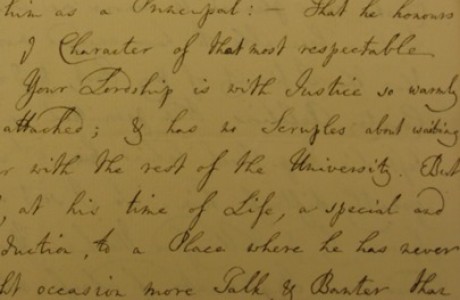 him as a Principal: — that he honours
y Character of that most respectable
Your Lordship is with Justice so warmly
attached; & has no Scruples about waiting
with the rest of the University. But
, at his time of Life, a special and
duction, to a Place where he has never
ht occasion more Talk & Banter than